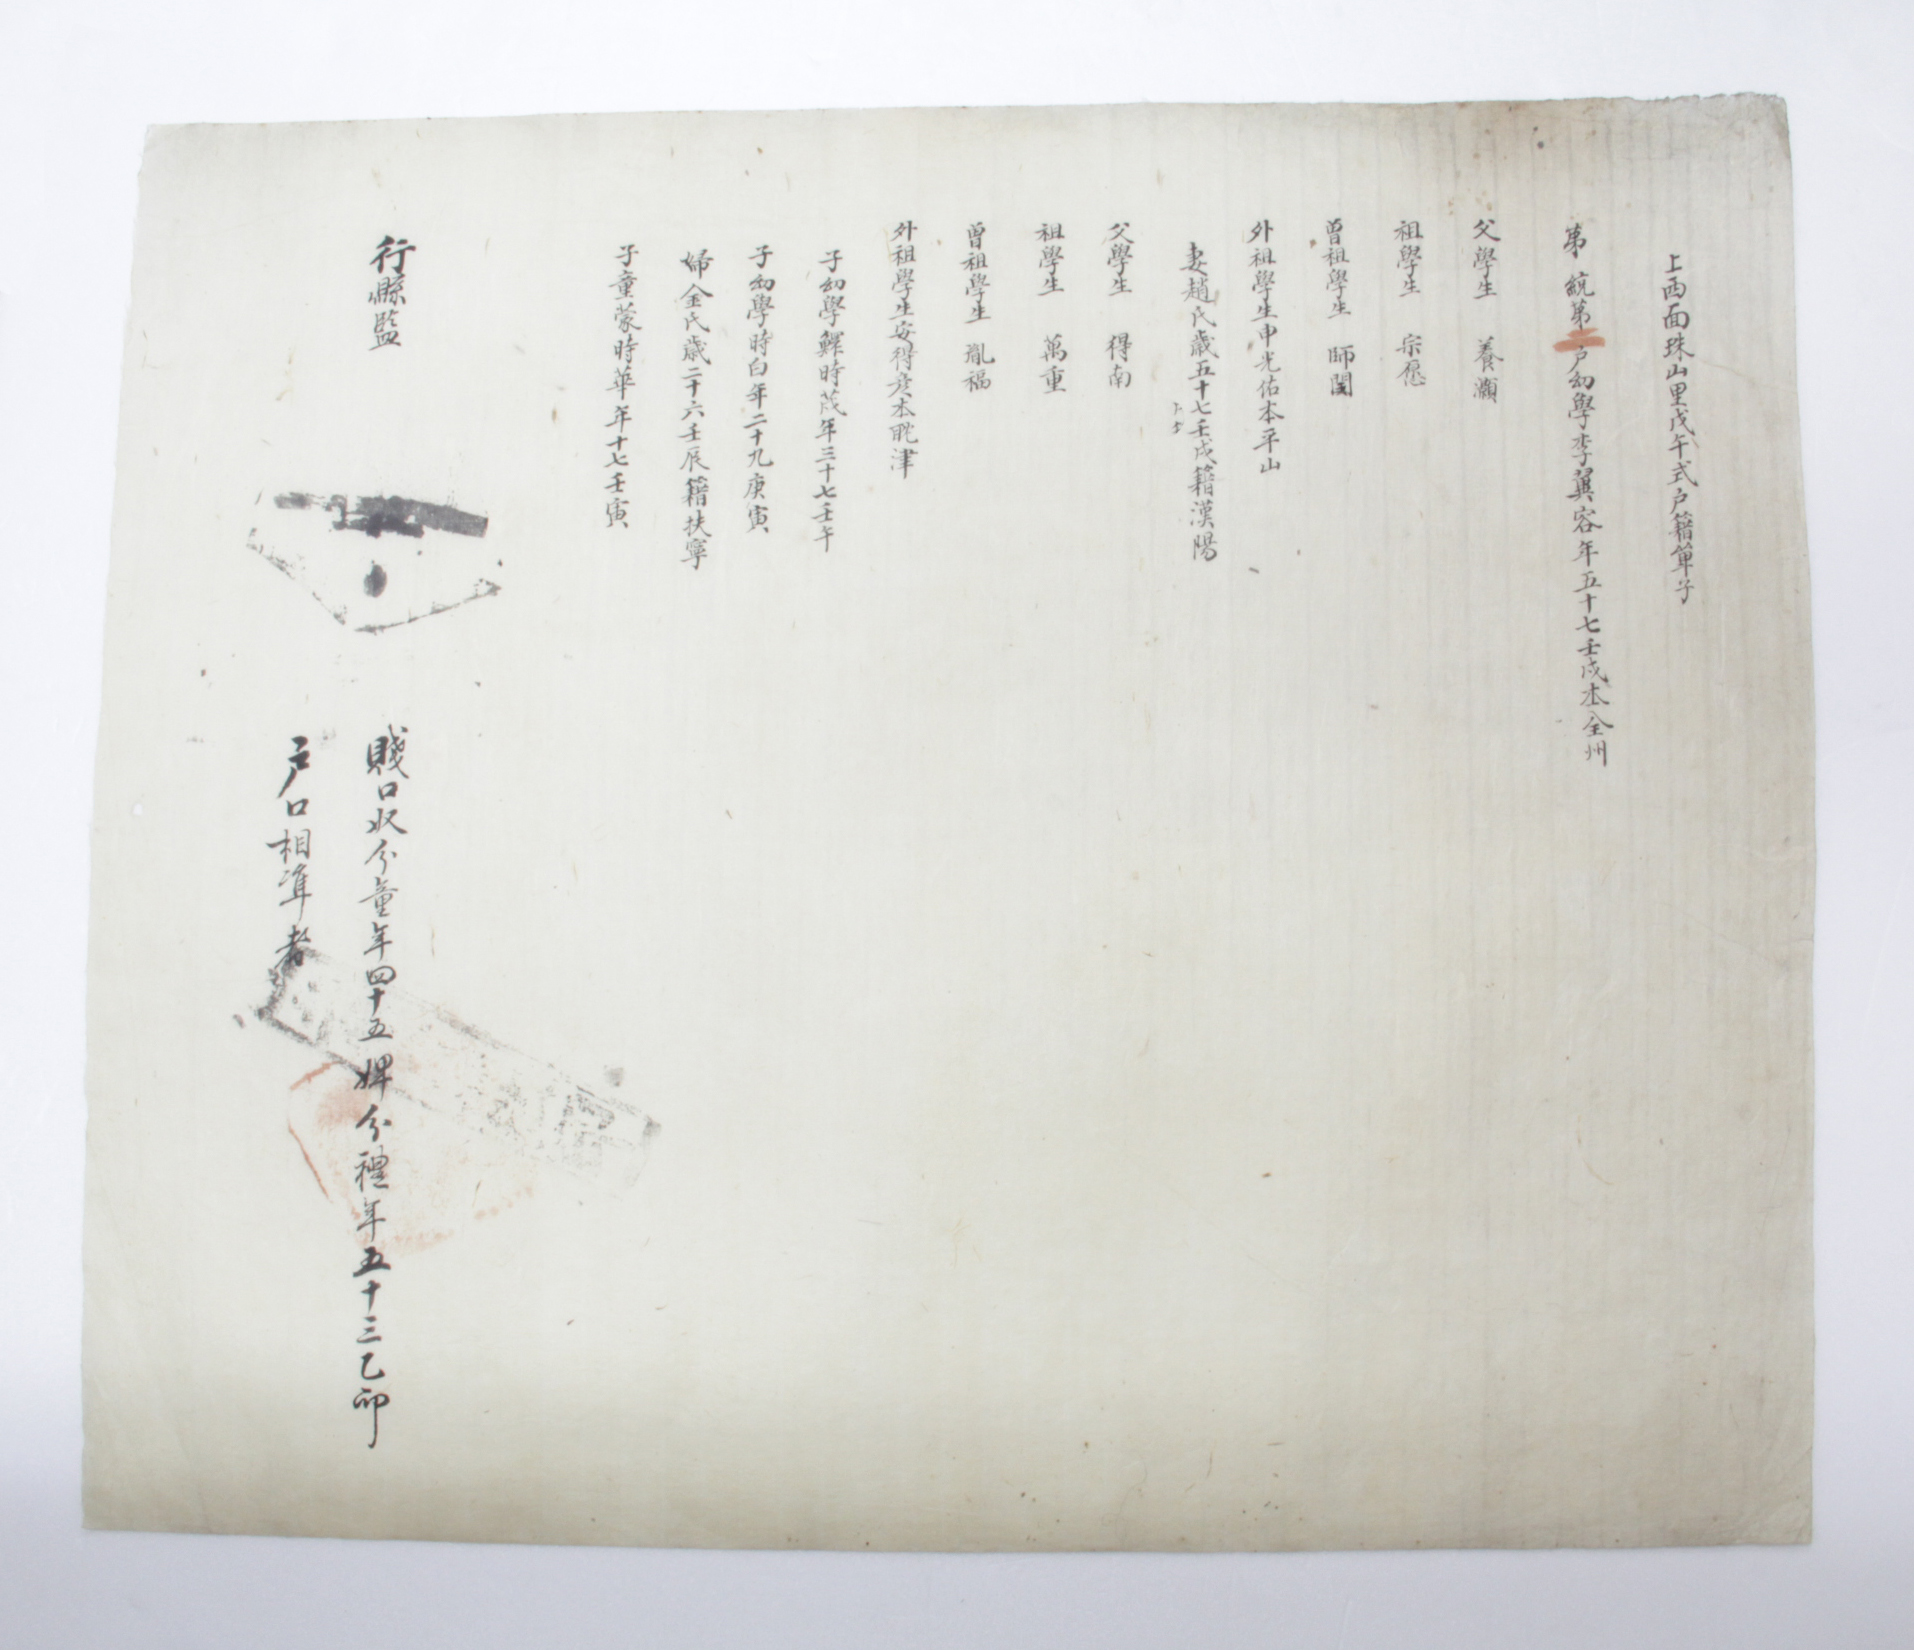 上西面珠山里戊午式戶籍單子
第 統第二戶幼學李翼容年五十七壬戌本全州
父學生 養灝
祖學生 宗愿
曾祖學生 師閔
外祖學生申光佑本平山
妻趙氏歲五十七壬戌籍漢陽
父學生 得南
祖學生 萬重
曾祖學生 胤福
外祖學生安得彦本耽津
子幼學鮮時茂年三十七壬午
子幼學時白年二十九庚寅
婦金氏歲二十六壬辰籍扶寧
子童蒙時華年十七壬寅
行縣監
賤口奴分童年四十五婢分禮年五十三乙卯
戶口相準者